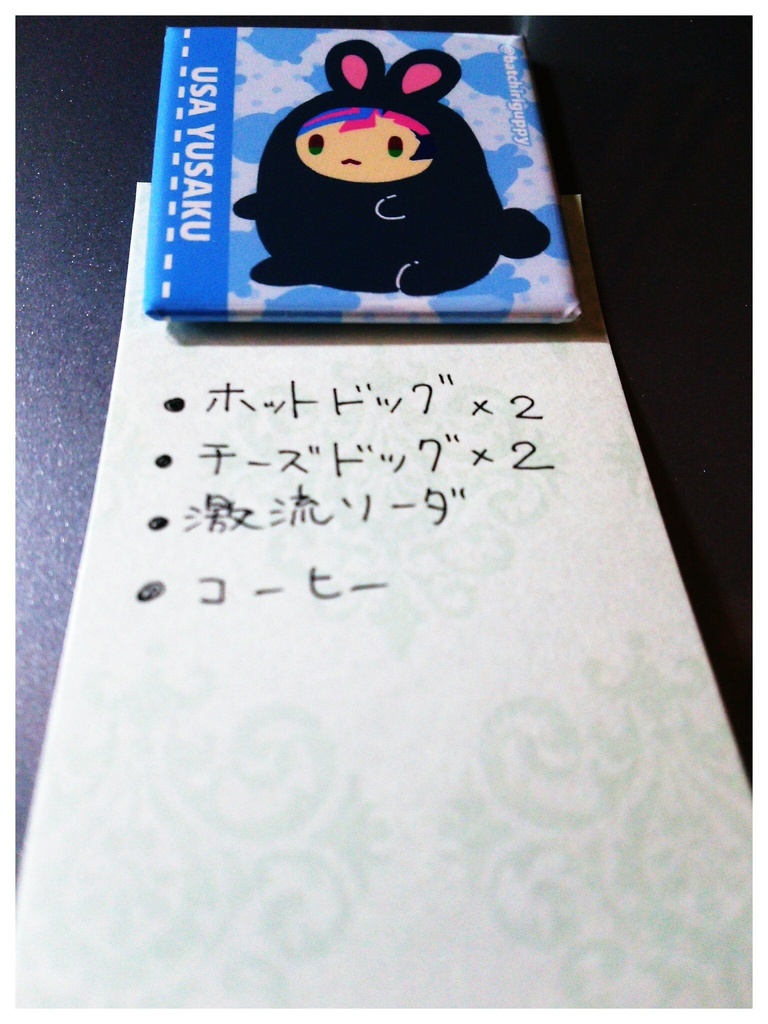 USA YUSAKU
@batchiriguppy
• ホットドッグ×2
• チーズドッグ×2
• 激流ソーダ
• コーヒー